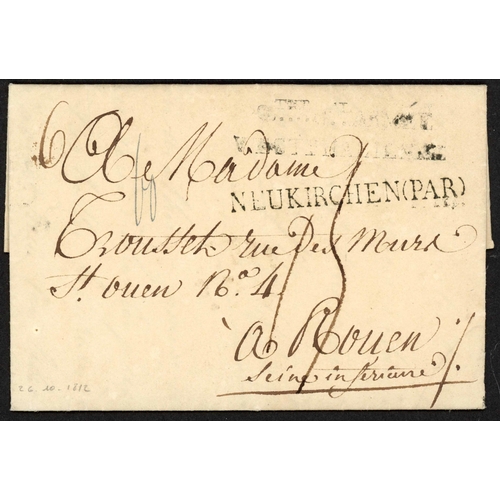 NEUKIRCHEN (PAR)
6
A Madame
Trousset rue Des Murs
St. ouen No. 4
à Rouen
Seine inferieure
26.10.1812